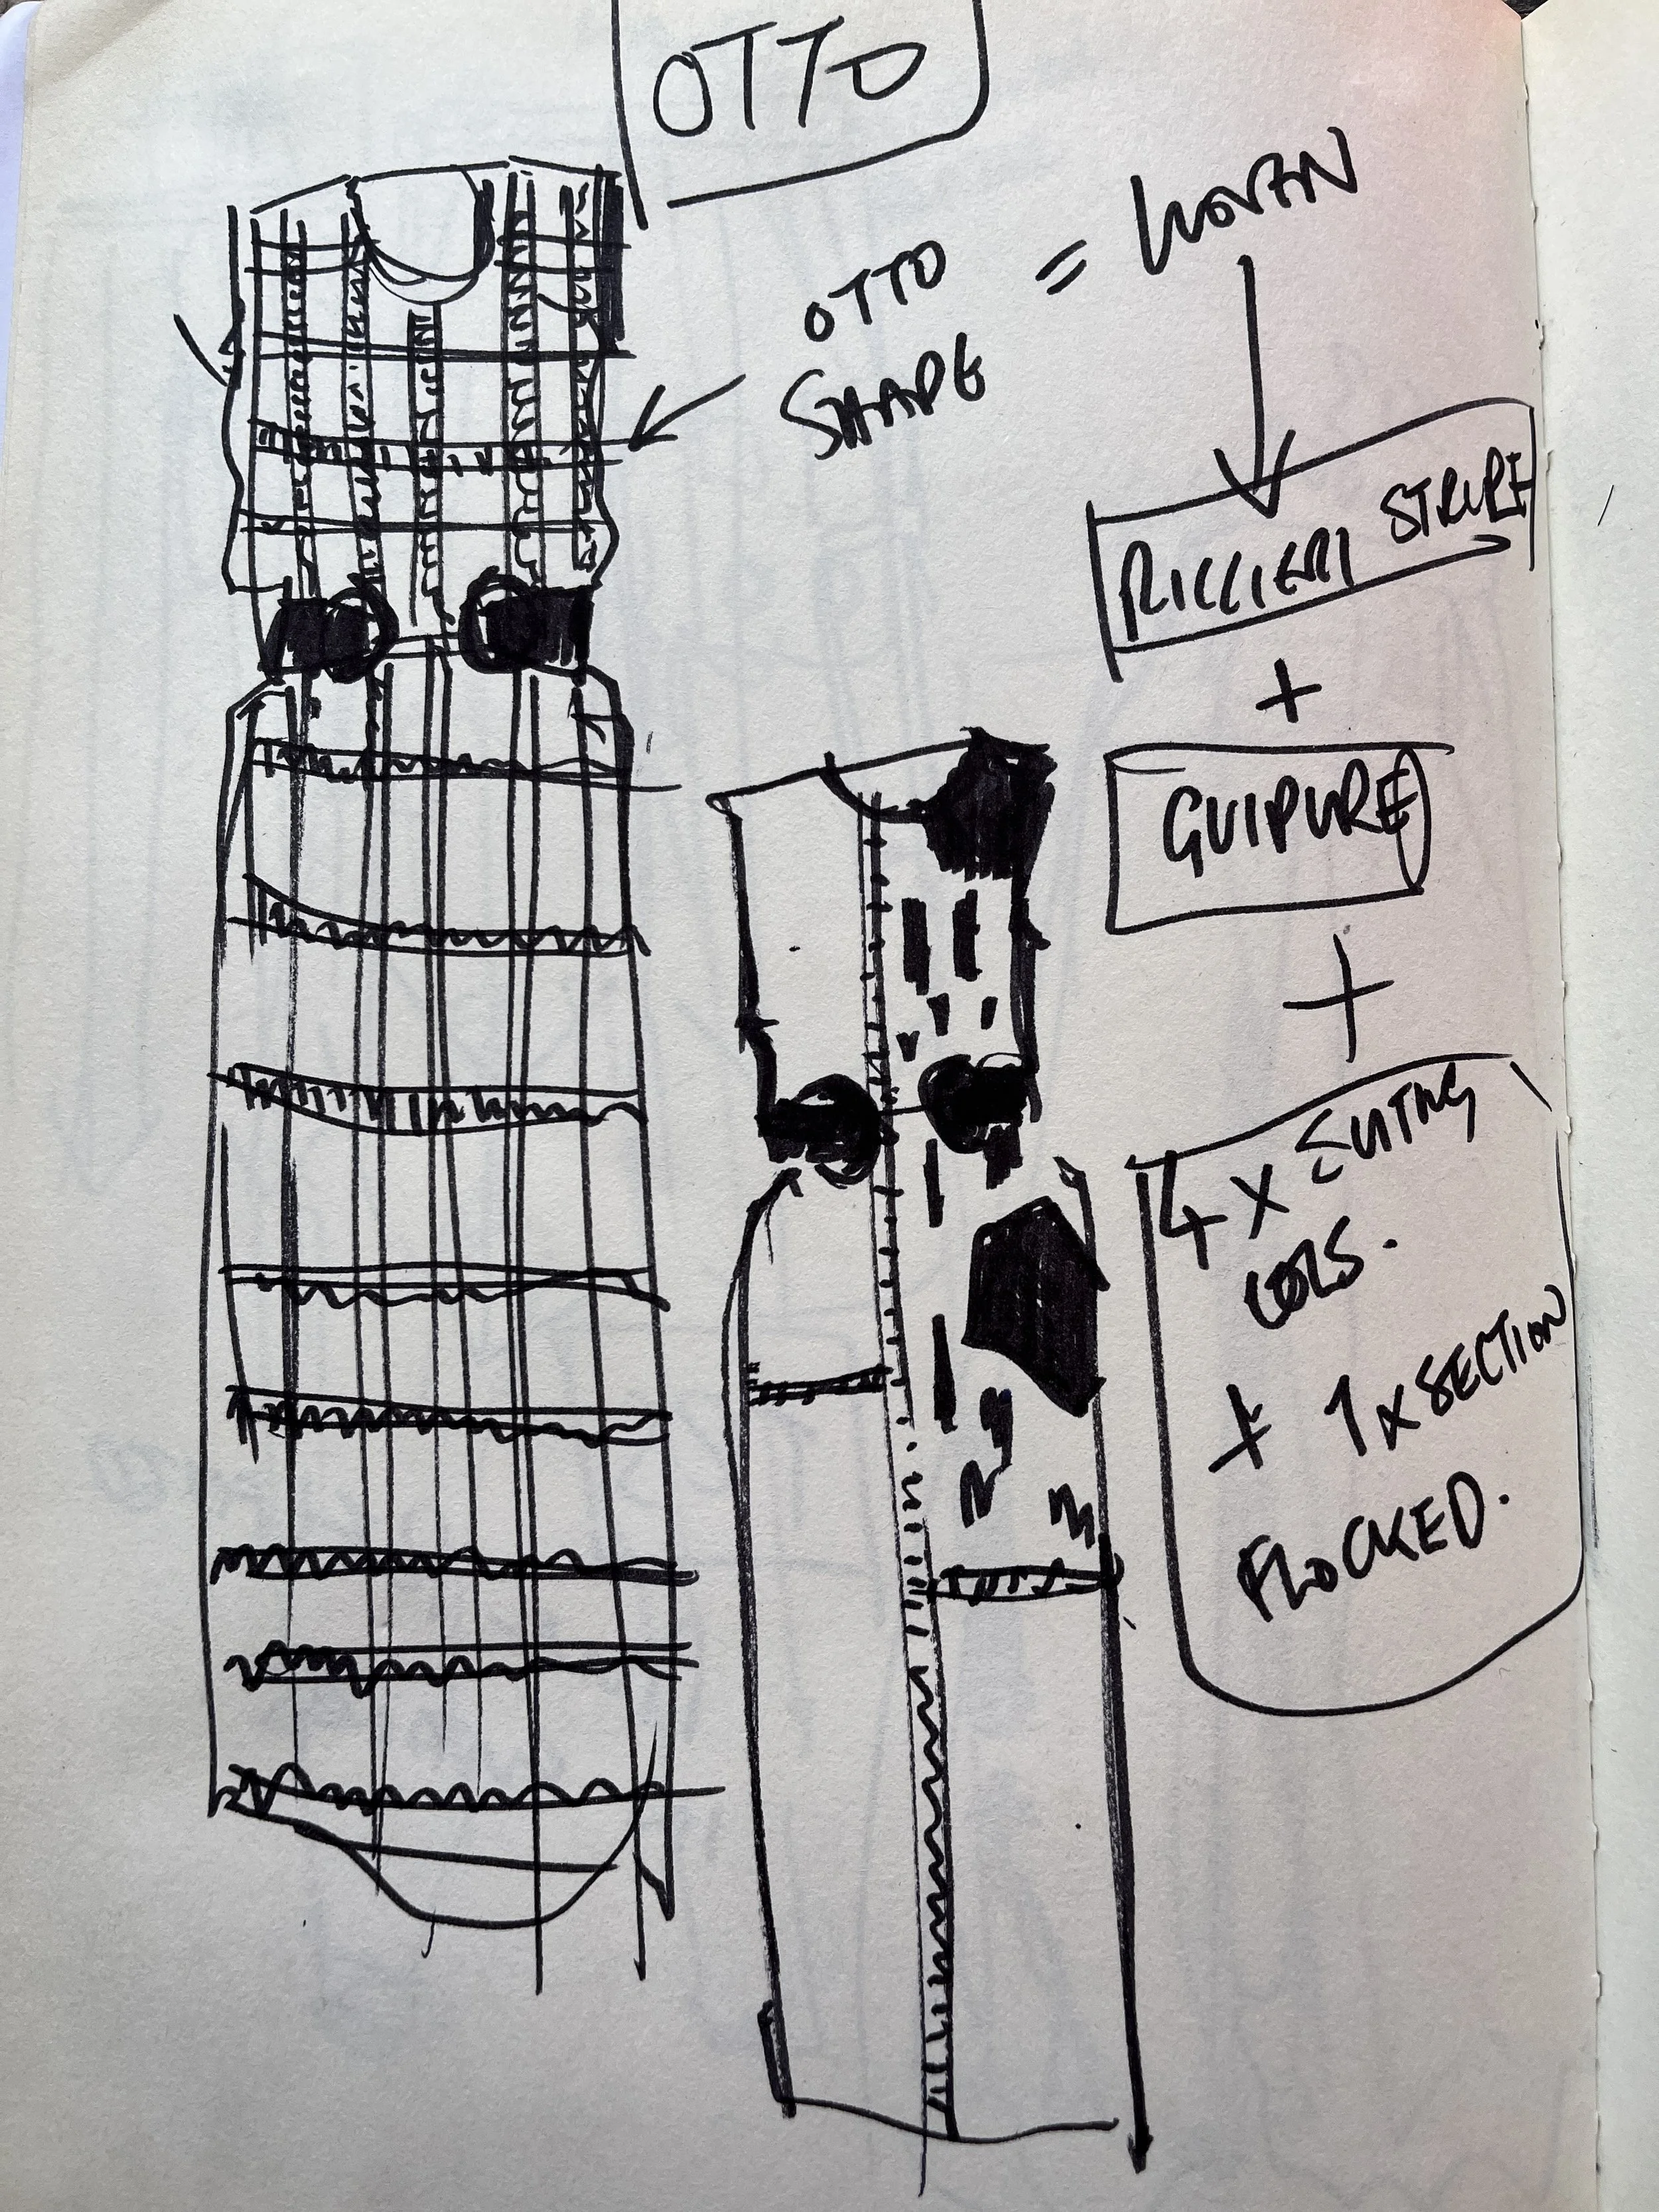 OTTO
OTTO = WOVEN
SHAPE
RICCIERI STRIPE
+
GUIPURE
+
4 x SUITING
COLS.
+ 1 x SECTION
FLOCKED.